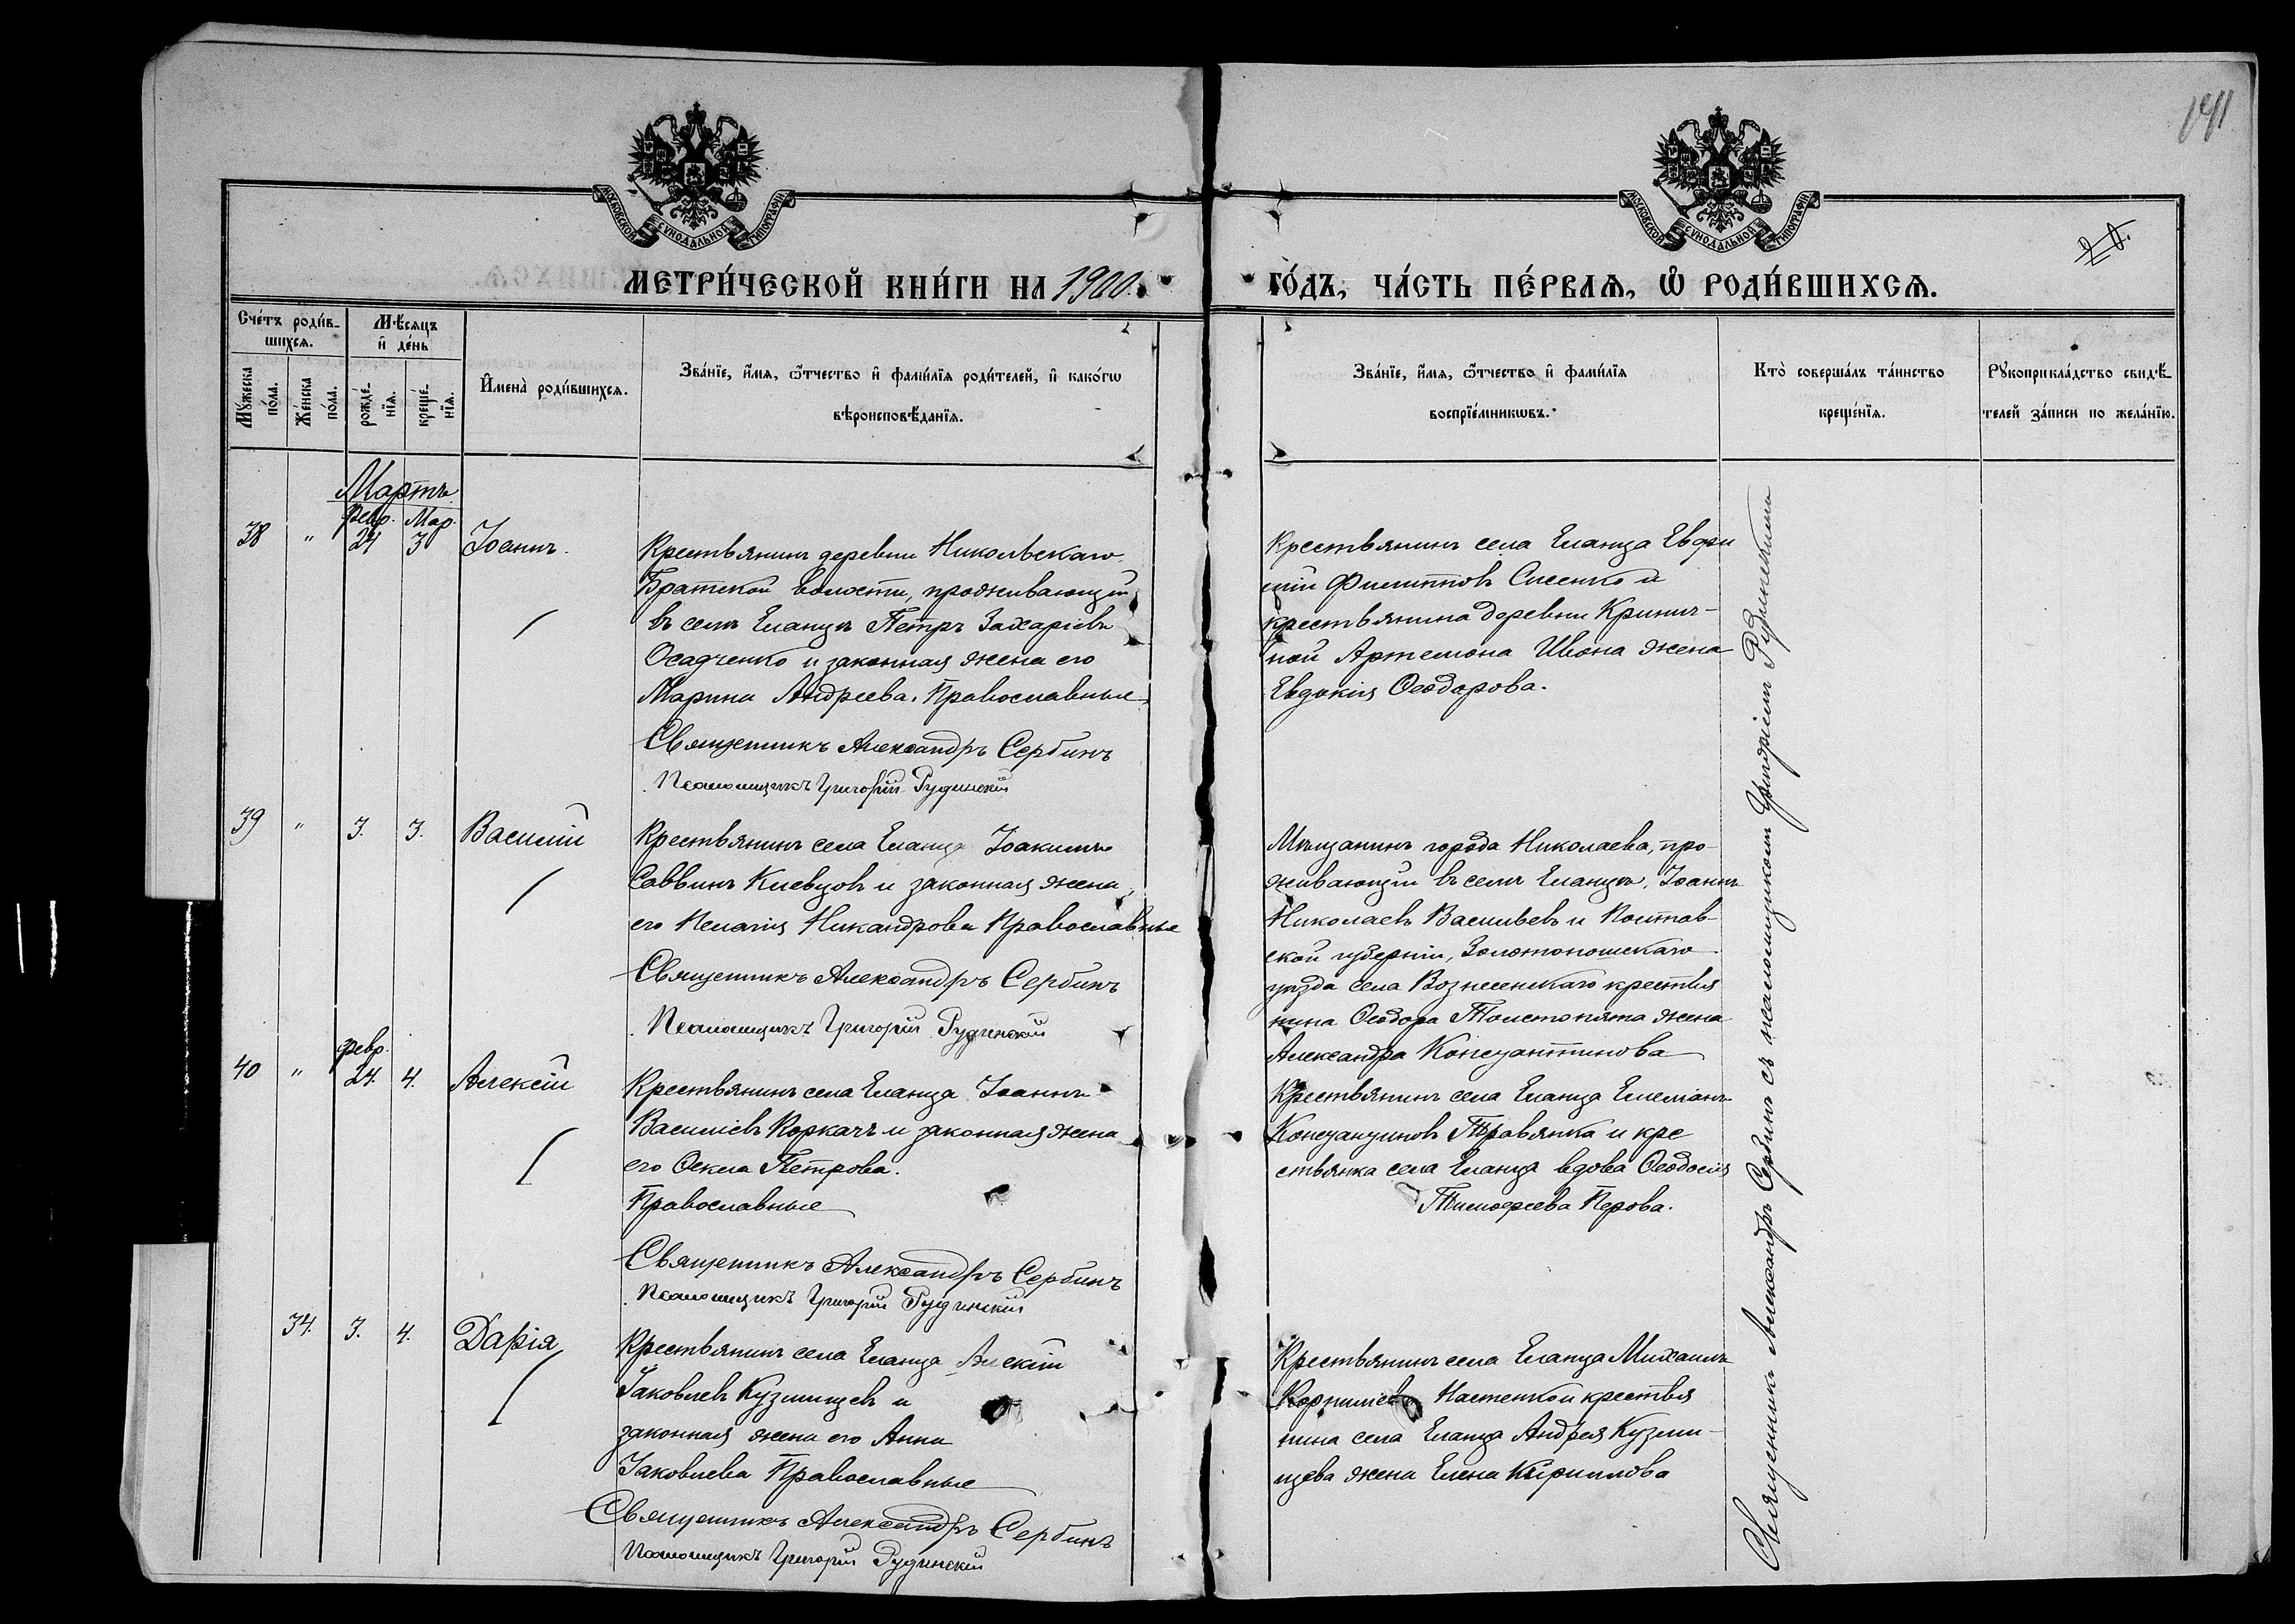 141
20.
МОСКОВСКОЙ СѴНОДАЛЬНОЙ ТИПОГРАФІИ
МОСКОВСКОЙ СѴНОДАЛЬНОЙ ТИПОГРАФІИ
МЕТРИ́ЧЕСКОЙ КНИ́ГИ НА 1900.
ГО́ДЪ, ЧА́СТЬ ПЕ́РВАѦ, Ѡ РОДИ́ВШИХСѦ.
Сче́тъ роди́в-
шихсѧ.
Мꙋ́жеска
по́ла.
Же́нска
по́ла.
Мѣ́сѧцъ
и҆ де́нь
рожде́-
нїѧ.
креще́-
нїѧ.
И҆мена̀ роди́вшихсѧ.
Зва́нїе, и҆́мѧ, ѻ҆́тчество и҆ фами́лїѧ роди́телей, и҆ како́гѡ
вѣроисповѣ́данїѧ.
Зва́нїе, и҆́мѧ, ѻ҆́тчество и҆ фами́лїѧ
воспрїе́мникѡвъ.
Кто̀ соверша́лъ та́инство
креще́нїѧ.
Рꙋкоприкла́дство свидѣ́-
телей за́писи по жела́нїю.
Мартъ
Февр. Мар.
38 " 24 3 Іоаннъ.
Крестьянинъ деревни Никольскаго
Братской волости, проживающій
въ селѣ Еланцѣ Петръ Захаріевъ
Осадченко и законная жена его
Марина Андреева. Православные
Священникъ Александръ Сербинъ
Псаломщикъ Григорій Рудинскій
Крестьянинъ села Еланца Евфи
мій Филипповъ Сисенко и
крестьянина деревни Кринич-
ной Артемона Ивона жена
Евдокія Ѳеодорова.
39 " 3. 3. Василій
Крестьянинъ села Еланца Іоакимъ
Саввинъ Киевцовъ и законная жена
его Пелагія Никандрова Православные
Священникъ Александръ Сербинъ
Псаломщикъ Григорій Рудинскій
Мѣщанинъ города Николаева, про-
живающій въ селѣ Еланцѣ, Іоаннъ
Николаевъ Васильевъ и Полтав-
ской губерніи, Золотоношскаго
уѣзда села Вознесенскаго крестья
нина Ѳеодора Толстопята жена
Александра Константинова
Февр.
40 " 24. 4. Алексій
Крестьянинъ села Еланца Іоаннъ
Василіевъ Коркачъ и законная жена
его Ѳекла Петрова.
Православные
Священникъ Александръ Сербинъ
Псаломщикъ Григорій Рудинскій
Крестьянинъ села Еланца Емеліанъ
Константиновъ Травянка и кре
стьянка села Еланца вдова Ѳеодосія
Тимоѳеева Перова.
34. 3. 4. Дарія
Крестьянинъ села Еланца Алексій
Іаковлевъ Кузминцевъ и
законная жена его Анна
Іаковлева Православные
Священникъ Александръ Сербинъ
Псаломщикъ Григорій Рудинскій
Крестьянинъ села Еланца Михаилъ
Корниліевъ Настенко и крестья
нина села Еланца Андрея Кузмин-
цева жена Елена Кириллова
Священникъ Александръ Сербинъ съ псаломщикомъ Григоріемъ Рудинскимъ